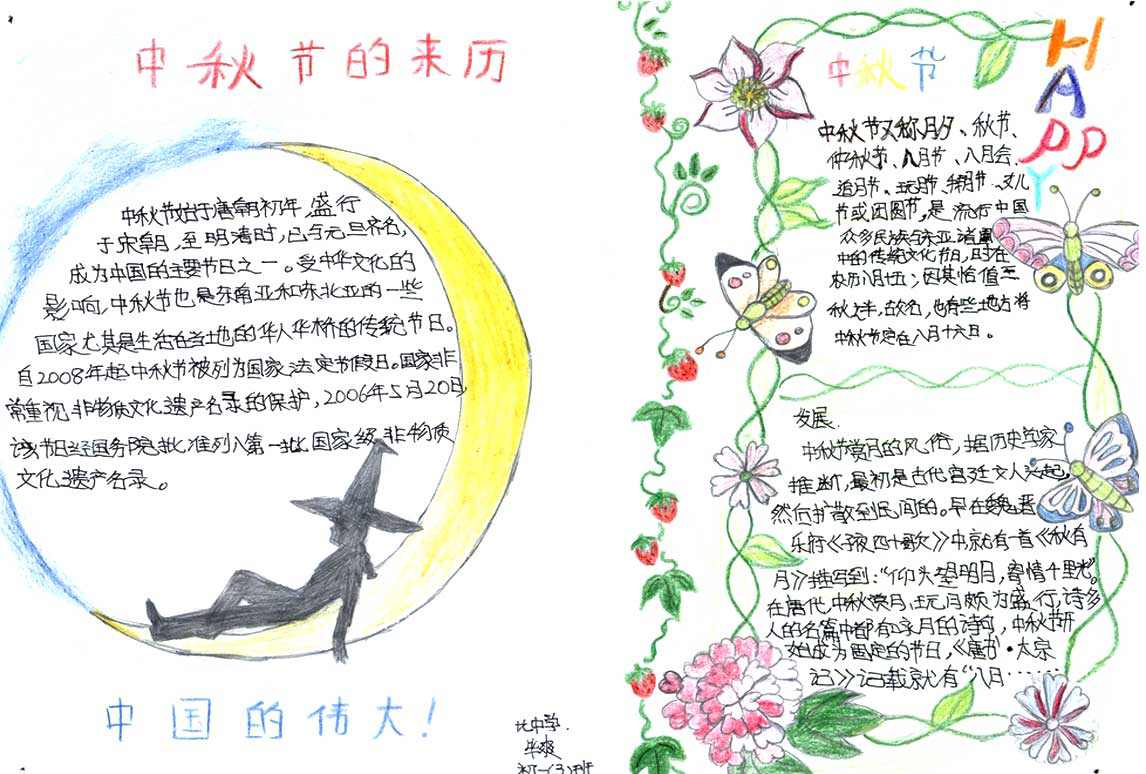 中秋节的来历
中秋节始于唐朝初年,盛行
于宋朝,至明清时,已与元旦齐名,
成为中国的主要节日之一。受中华文化的
影响,中秋节也是东南亚和东北亚的一些
国家尤其是生活在当地的华人华桥的传统节日。
自2008年起中秋节被列为国家法定节假日。国家非
常重视非物质文化遗产名录的保护,2006年5月20日
该节日经国务院批准列入第一批国家级非物质
文化遗产名录。
中国的伟大!
北中学.
初一(3)班
中秋节
HAPPY
中秋节又称月夕、秋节、
仲秋节、八月节、八月会、
追月节、玩月节、拜月节、女儿
节或团圆节,是流行中国
众多民族与东亚诸国
中的传统文化节日,时在
农历八月十五;因其恰值三
秋之半,故名,也有些地方将
中秋节定在八月十六日。
发展.
中秋节赏月的风俗,据历史学家
推断,最初是古代宫廷文人兴起,
然后扩散到民间的。早在魏晋
乐府《子夜四十歌》中就有一首《秋有
月》描写到:“仰头望明月,寄情千里光”。
在唐代,中秋赏月、玩月颇为盛行,诗多
人的名篇中都有咏月的诗句,中秋节开
始成为固定的节日,《唐书·太宗
记》记载就有“八月……